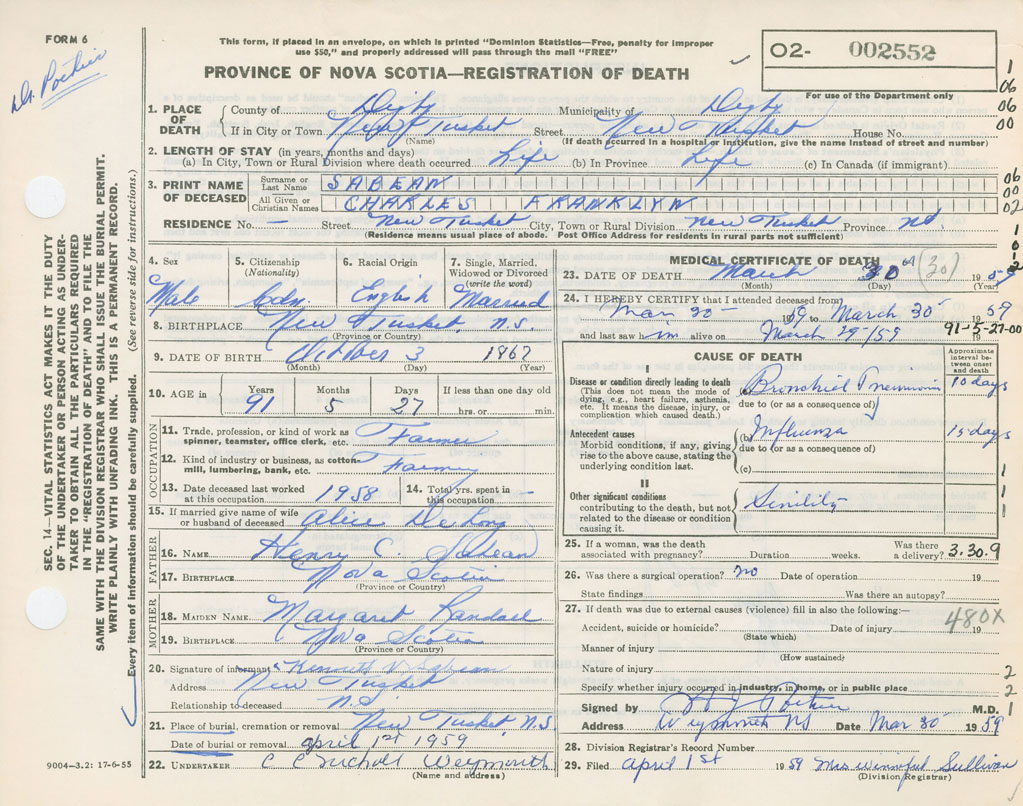 FORM 6
Dr. Pothier
This form, if placed in an envelope, on which is printed "Dominion Statistics—Free, penalty for improper
use $50," and properly addressed will pass through the mail "FREE"
PROVINCE OF NOVA SCOTIA—REGISTRATION OF DEATH
O2- 002552
For use of the Department only
1
06
06
00
1. PLACE OF DEATH
County of Digby Municipality of Digby
If in City or Town New Tusket Street New Tusket House No.
(Name) (If death occurred in a hospital or institution, give the name instead of street and number)
2. LENGTH OF STAY (in years, months and days)
(a) In City, Town or Rural Division where death occurred Life (b) In Province Life (c) In Canada (if immigrant)
3. PRINT NAME OF DECEASED
Surname or Last Name SABEAN
All Given or Christian Names CHARLES FRANKLYN
06
00
02
RESIDENCE No. — Street New Tusket City, Town or Rural Division New Tusket Province N.S.
(Residence means usual place of abode. Post Office Address for residents in rural parts not sufficient)
1
0
2
SEC. 14—VITAL STATISTICS ACT MAKES IT THE DUTY
OF THE UNDERTAKER OR PERSON ACTING AS UNDER-
TAKER TO OBTAIN ALL THE PARTICULARS REQUIRED
IN THE "REGISTRATION OF DEATH" AND TO FILE THE
SAME WITH THE DIVISION REGISTRAR WHO SHALL ISSUE THE BURIAL PERMIT.
WRITE PLAINLY WITH UNFADING INK. THIS IS A PERMANENT RECORD.
Every item of information should be carefully supplied. (See reverse side for instructions.)
4. Sex
Male
5. Citizenship
(Nationality)
Cdn.
6. Racial Origin
English
7. Single, Married,
Widowed or Divorced
(write the word)
Married
8. BIRTHPLACE New Tusket N.S.
(Province or Country)
9. DATE OF BIRTH October 3 1867
(Month) (Day) (Year)
10. AGE in
Years Months Days If less than one day old
91 5 27 hrs. or min.
OCCUPATION
11. Trade, profession, or kind of work as
spinner, teamster, office clerk, etc. Farmer
12. Kind of industry or business, as cotton
mill, lumbering, bank, etc. Farming
13. Date deceased last worked
at this occupation 1958
14. Total yrs. spent in
this occupation —
15. If married give name of wife
or husband of deceased Alice DeLong
FATHER
16. NAME Henry C. Sabean
17. BIRTHPLACE Nova Scotia
(Province or Country)
MOTHER
18. MAIDEN NAME Margaret Randall
19. BIRTHPLACE Nova Scotia
(Province or Country)
20. Signature of informant Kenneth V. Sabean
Address New Tusket
Relationship to deceased N.S.
21. Place of burial, cremation or removal New Tusket N.S.
Date of burial or removal April 1st 1959
22. UNDERTAKER C C Nicholl Weymouth
(Name and address)
9004—3.2: 17-6-55
MEDICAL CERTIFICATE OF DEATH
23. DATE OF DEATH March 30 (30) 1959
(Month) (Day) (Year)
24. I HEREBY CERTIFY that I attended deceased from
Mar 30 — 1959 to March 30 1959
and last saw him alive on March 29/59 19
91-5-27-00
CAUSE OF DEATH
Approximate interval between onset and death
I
Disease or condition directly leading to death
(This does not mean the mode of
dying, e.g., heart failure, asthenia,
etc. It means the disease, injury, or
complication which caused death.)
Bronchial Pneumonia 10 days
due to (or as a consequence of)
Antecedent causes
Morbid conditions, if any, giving
rise to the above cause, stating the
underlying condition last.
(b) Influenza 15 days
due to (or as a consequence of)
(c)
II
Other significant conditions
contributing to the death, but not
related to the disease or condition
causing it.
Senility
1
1
1
25. If a woman, was the death
associated with pregnancy? Duration weeks. Was there
a delivery? 3.30.9
26. Was there a surgical operation? No Date of operation 19
State findings Was there an autopsy?
27. If death was due to external causes (violence) fill in also the following:—
Accident, suicide or homicide? Date of injury 19
(State which)
480X
Manner of injury
(How sustained?)
Nature of injury 2
Specify whether injury occurred in industry, in home, or in public place 2
Signed by Pothier M.D. 1
Address Weymouth NS Date Mar 30 1959
28. Division Registrar's Record Number
29. Filed April 1st 1959 Mrs Winnifred Sullivan
(Division Registrar)